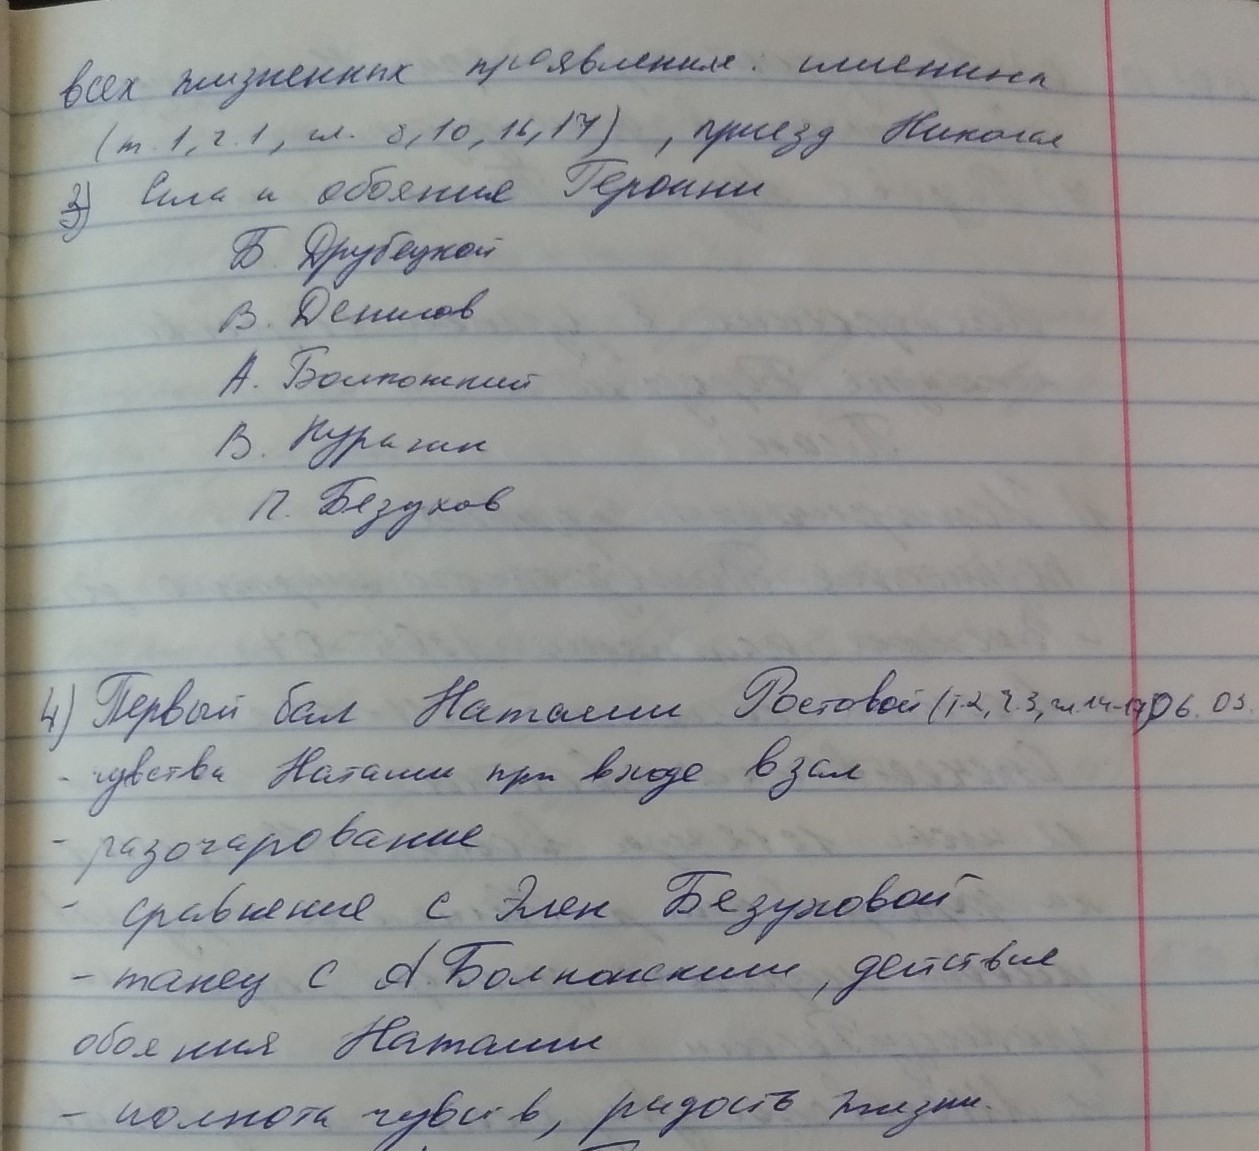 всех жизненных проявления: именины
(т.1, ч.1, гл. 8, 10, 16, 17), приезд Николая
3) Сила и обояние Героини
Б. Друбецкой
В. Денисов
А. Болконский
В. Курагин
П. Безухов
4) Первый бал Наташи Ростовой (т.2, ч.3, гл.14-17) 06.03.
- чувства Наташи при входе в зал
- разочарование
- сравнение с Элен Безуховой
- танец с А. Болконским, действие
обояния Наташи
- полнота чувств, радость жизни.